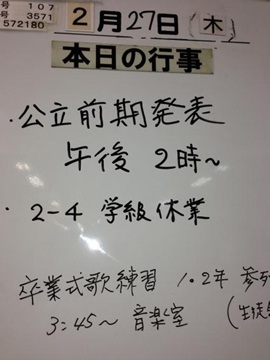 号 107
号 3571
572180
2月27日(木)
本日の行事
・公立前期発表
午後 2時~
・2-4 学級休業
卒業式歌練習 1.2年 参列
3:45~ 音楽室 (生徒